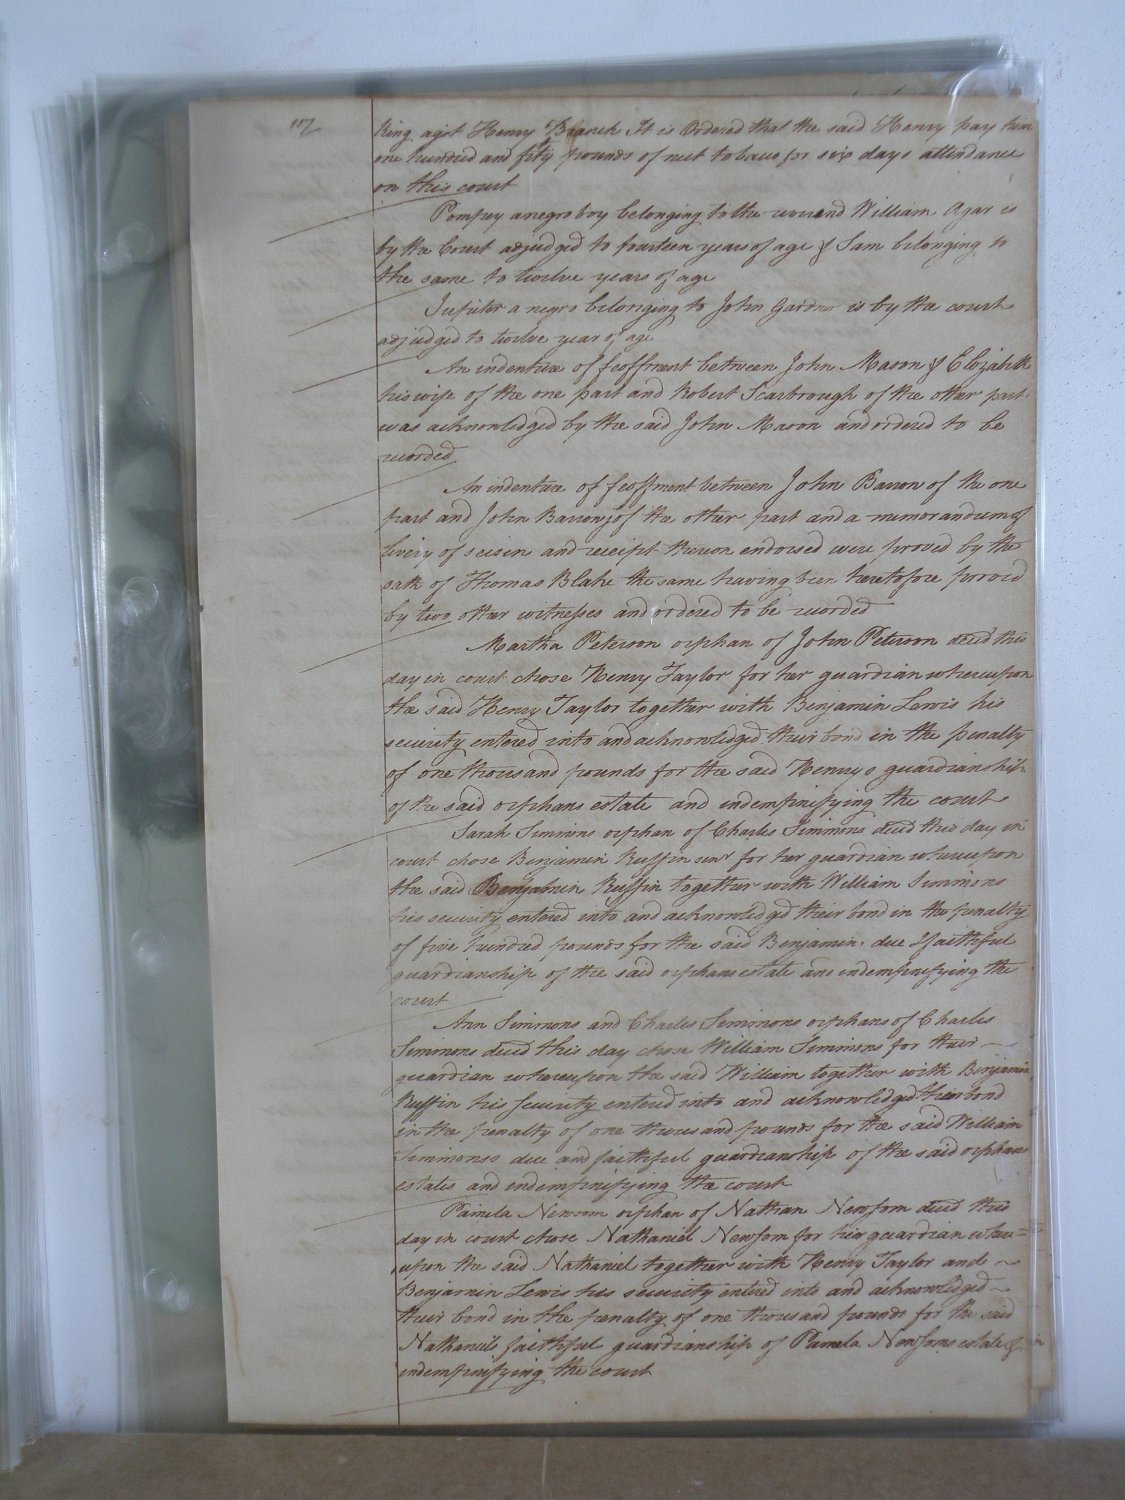 117
King agst Henry Branch It is Ordered that the said Henry pay him
one hundred and fifty pounds of nett tobacco for six days attendance
on this court
Pompey a negro boy belonging to the reverend William Agar is
by the Court adjudged to fourteen years of age & Sam belonging to
the same to twelve years of age
Jupiter a negro belonging to John Gardner is by the court
adjudged to twelve year of age
An indenture of feoffment between John Mason & Elizabeth
his wife of the one part and Robert Scarbrough of the other part
was acknowledged by the said John Mason and ordered to be
recorded
An indenture of feoffment between John Barrow of the one
part and John Barrow jr of the other part and a memorandum of
livery of seisin and receipt thereon endorsed were proved by the
oath of Thomas Blake the same having been heretofore proved
by two other witnesses and ordered to be recorded
Martha Peterson orphan of John Peterson deced this
day in court chose Henry Taylor for her guardian whereupon
the said Henry Taylor together with Benjamin Lewis his
security entered into and acknowledged their bond in the penalty
of one thousand pounds for the said Henrys guardianship
of the said orphans estate and indempnifying the court
Sarah Simmons orphan of Charles Simmons deced this day in
court chose Benjamin Ruffin for her guardian whereupon
the said Benjamin Ruffin together with William Simmons
his security entered into and acknowledged their bond in the penalty
of five hundred pounds for the said Benjamin. due & faithful
guardianship of the said orphans estate and indempnifying the
court
Ann Simmons and Charles Simmons orphans of Charles
Simmons deced this day chose William Simmons for their
guardian whereupon the said William together with Benjamin
Ruffin his security entered into and acknowledged their bond
in the penalty of one thousand pounds for the said William
Simmonss due and faithful guardianship of the said orphans
estates and indempnifying the court
Pamela Newsom orphan of Nathan Newsom deced this
day in court chose Nathaniel Newsom for her guardian where=
upon the said Nathaniel together with Henry Taylor and
Benjamin Lewis his security entered into and acknowledged
their bond in the penalty of one thousand pounds for the said
Nathaniels faithful guardianship of Pamela Newsoms estate &
indempnifying the court